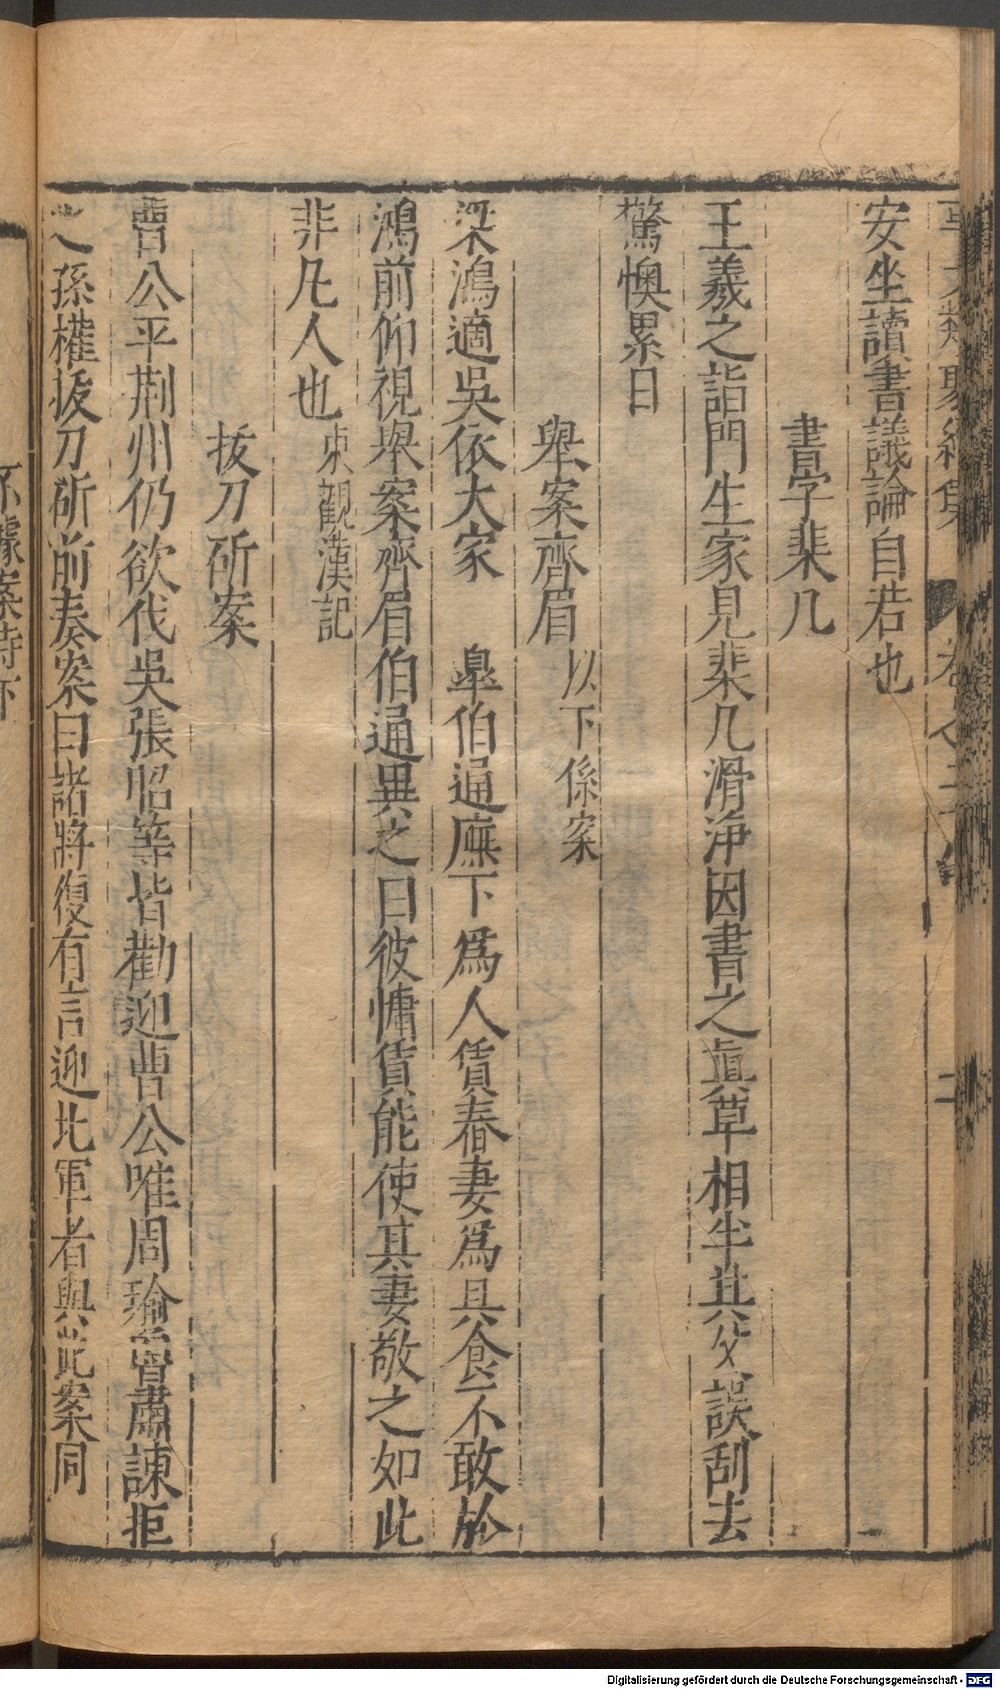 安坐讀書議論自若也
書字棐几
王羲之詣門生家見棐几滑浄因書之眞草相半其父誤刮去
驚懊累日
舉案齊眉 以下係案
梁鴻適吳依大家 臯伯通廡下爲人賃舂妻爲具食不敢於
鴻前仰視舉案齊眉伯通異之曰彼慵賃能使其妻敬之如此
非凡人也 東觀漢記
拔刀斫案
曹公平荆州仍欲伐吳張昭等皆勸迎曹公唯周瑜魯肅諫拒
之孫權拔刀斫前奏案曰諸將復有言迎北軍者與此案同
Digitalisierung gefördert durch die Deutsche Forschungsgemeinschaft - DFG